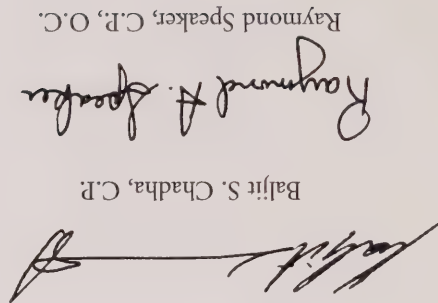 Baljit
Baljit S. Chadha, C.P.
Raymond A. Speaker
Raymond Speaker, C.P., O.C.